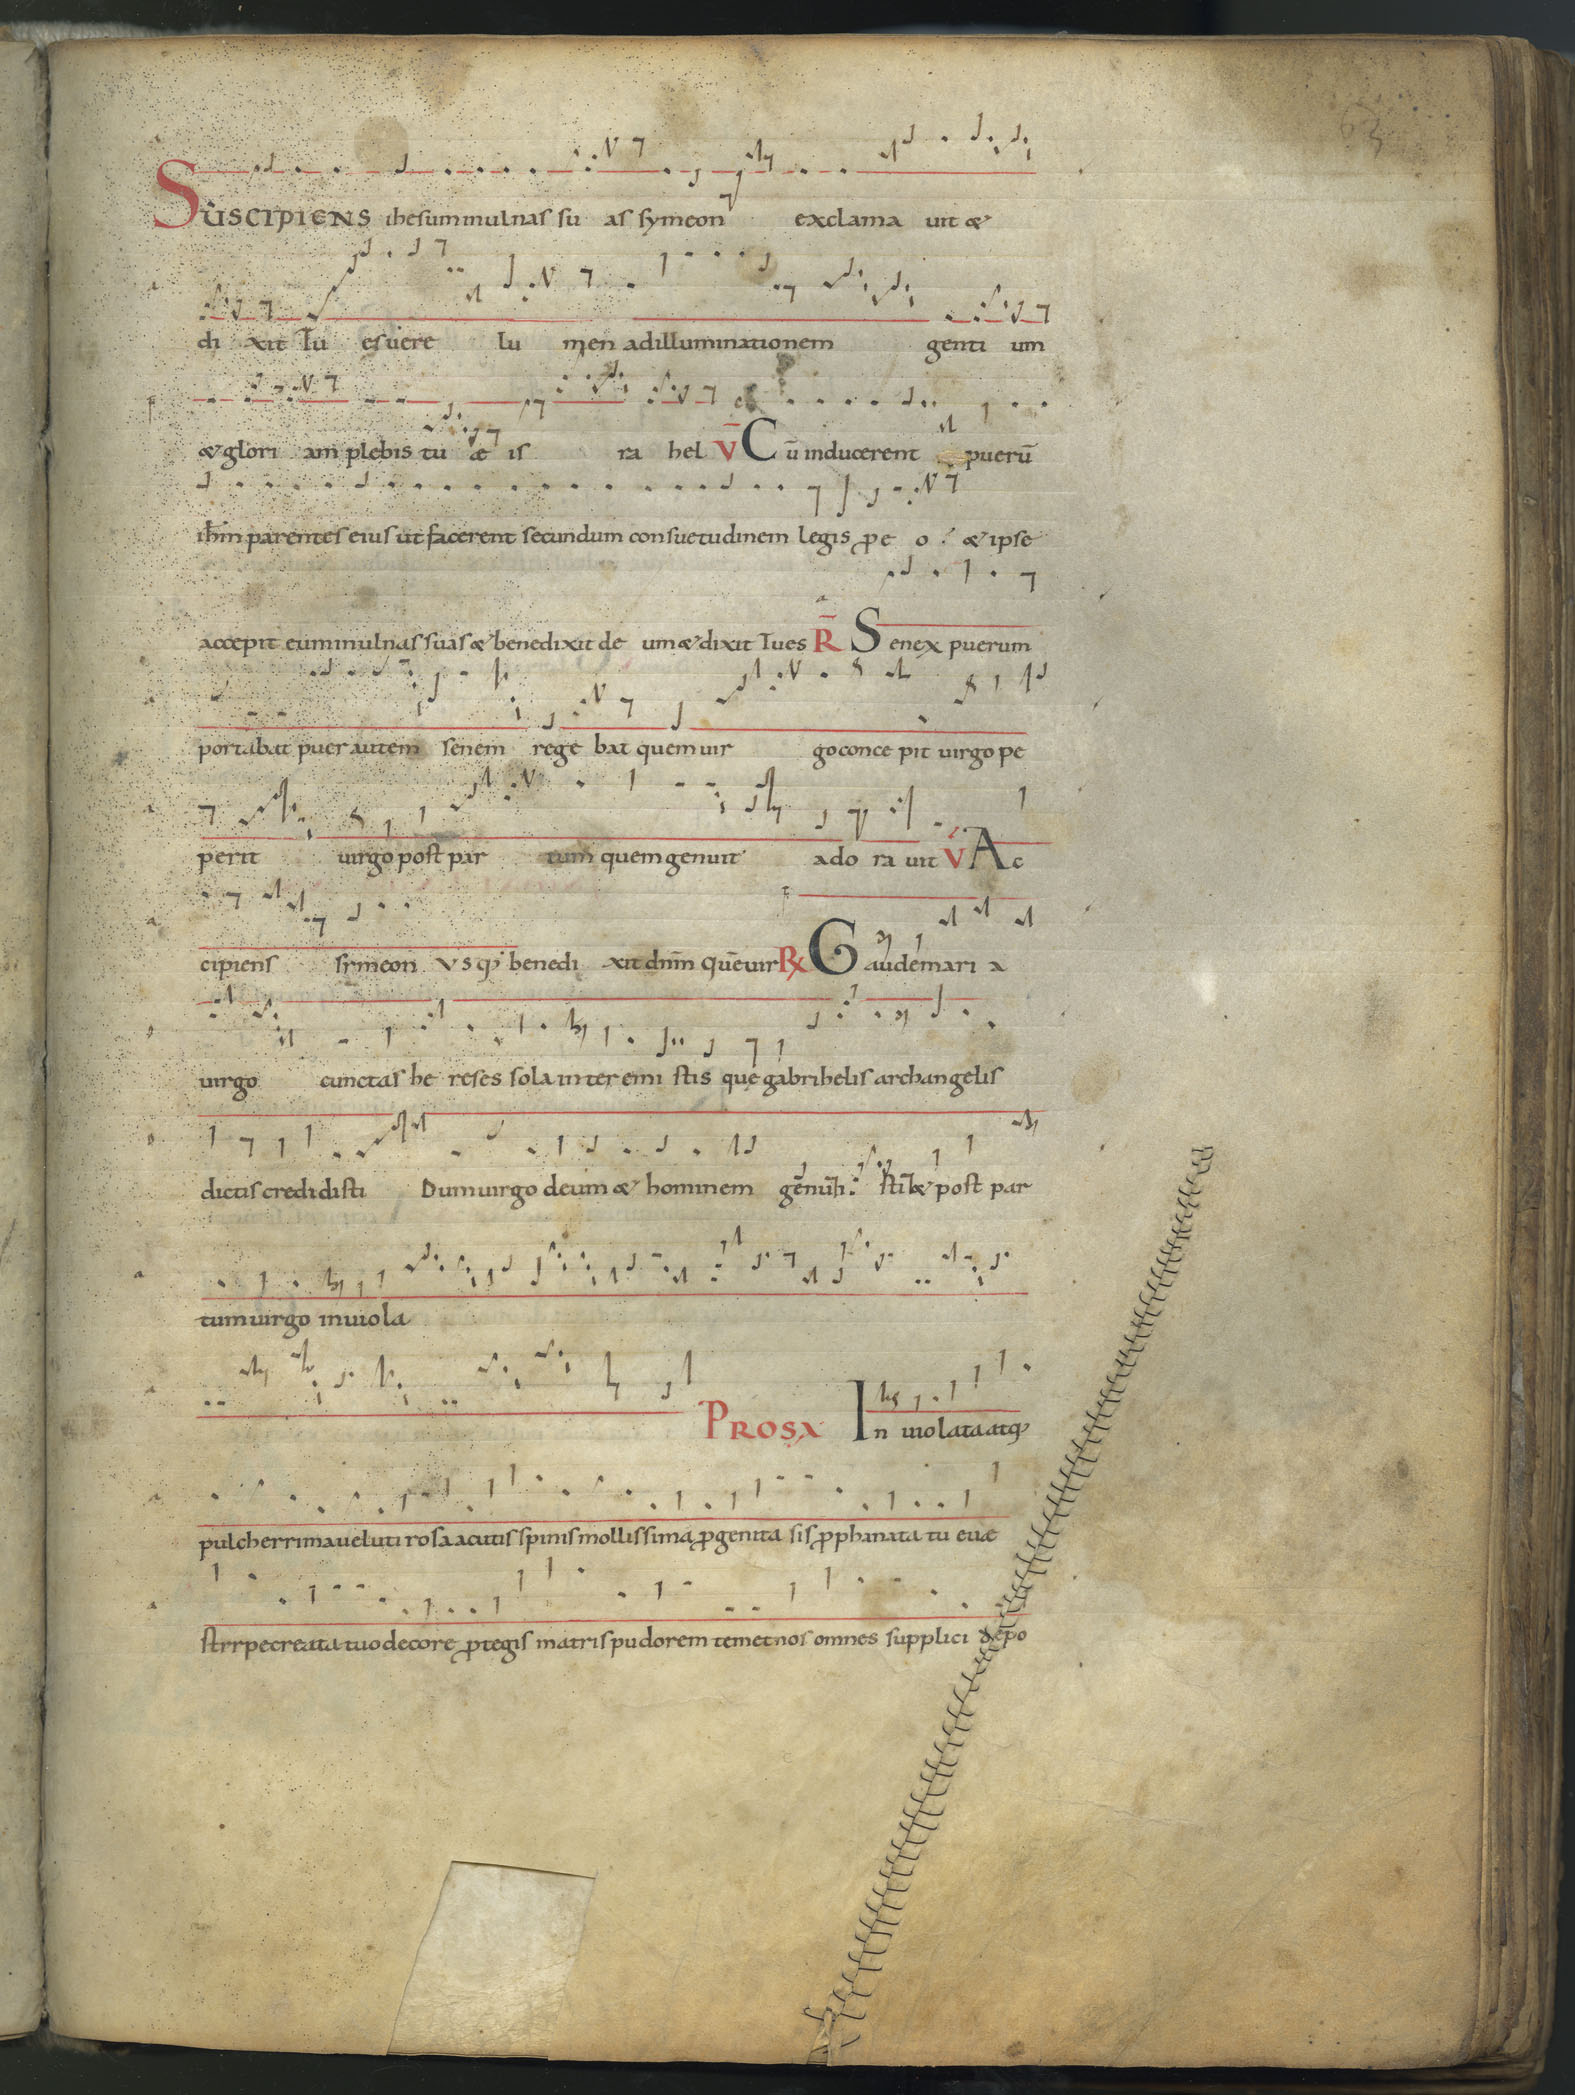 63
Suscipiens ihesum in ulnas su as symeon exclama uit &
di xit Tu es uere lu men ad illuminationem genti um
& glori am plebis tu æ is ra hel V̄ Cū inducerent puerū
ihm̄ parentes eius ut facerent secundum consuetudinem legis ꝓ e o & ipse
accepit eum in ulnas suas & benedixit de um & dixit Tu es R̄ Senex puerum
portabat puer autem senem rege bat quem uir go conce pit uirgo pe
perit uirgo post par tum quem genuit ado ra uit V̄ Ac
cipiens symeon Vsq; benedi xit dnm̄ Quē uir R̄ Gaude mari a
uirgo cunctas he reses sola interemi stis quę gabrihelis archangelis
dictis credidisti Dum uirgo deum & hominem & post par
tum uirgo inuiola
PROSA Inuiolata atq;
pulcherrima ueluti rosa acutis spinis mollissima ꝓgenita sis ꝓphanata tu euæ
stirpe creata tuo decore ꝓtegis matris pudorem temet nos omnes supplici depo